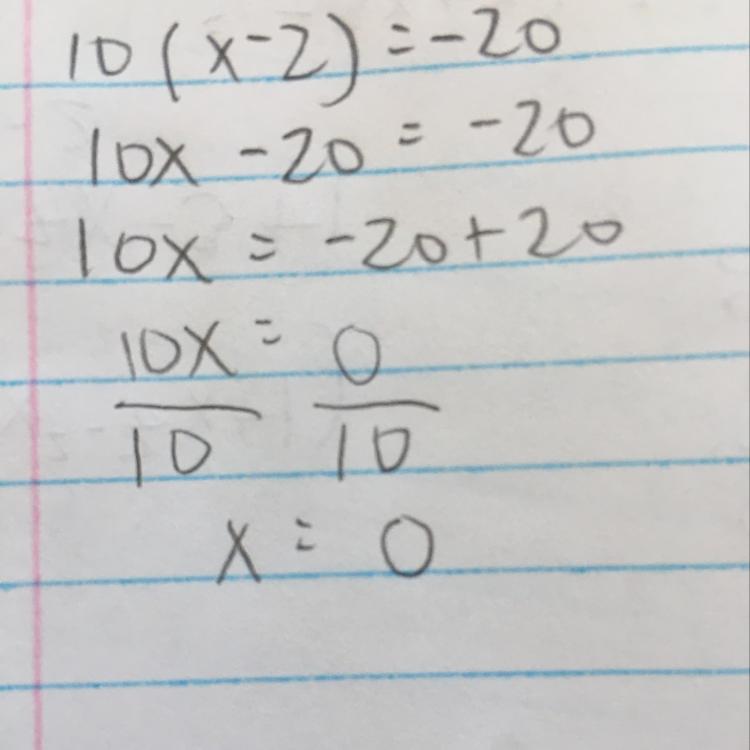 10(x-2)=-20
10x -20 = -20
10x = -20+20
10x = 0
10 10
x = 0